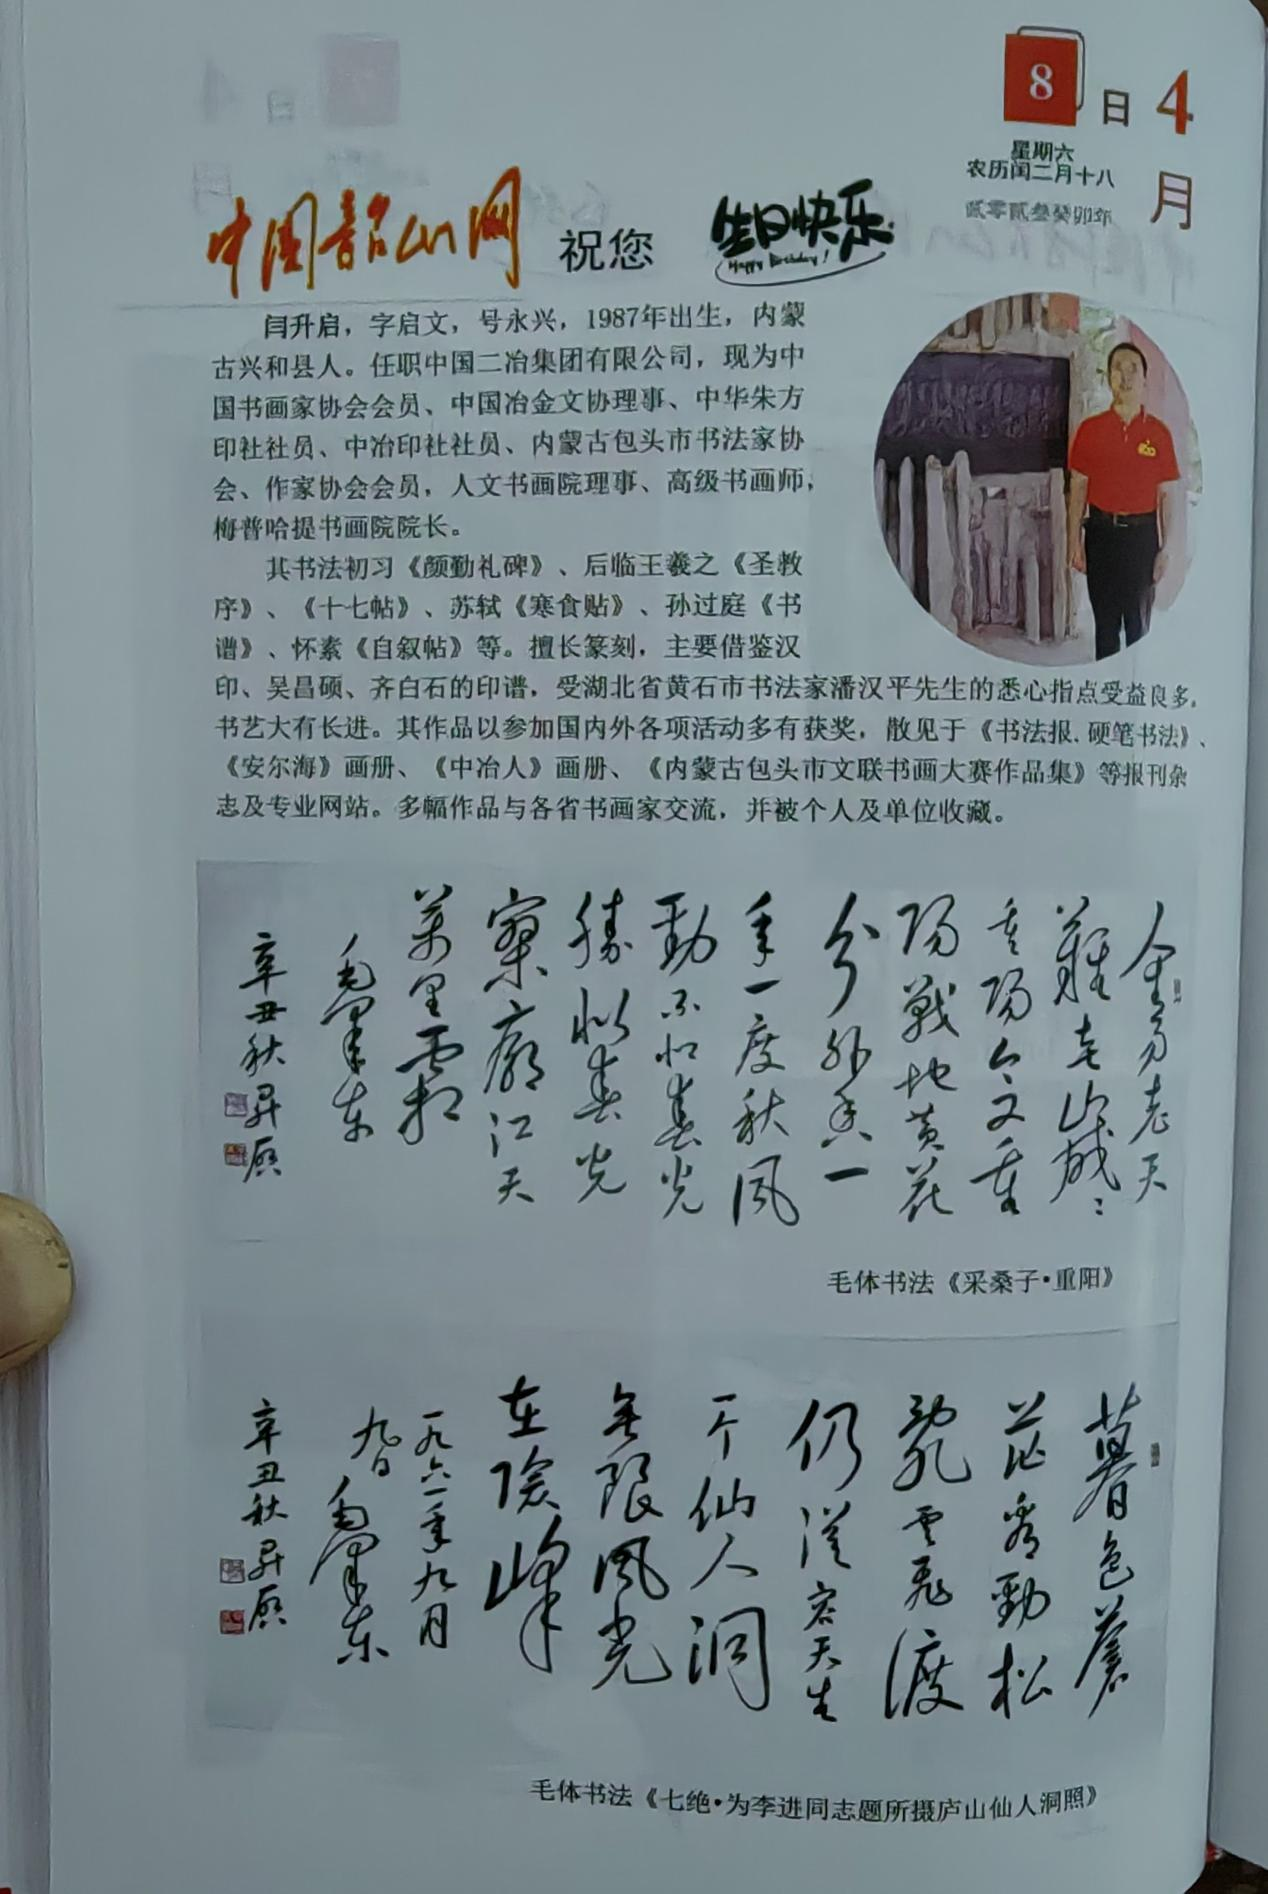 8日 4月
星期六
农历闰二月十八
贰零贰叁癸卯年
中国韶山网 祝您 生日快乐
Happy Birthday!
闫升启，字启文，号永兴，1987年出生，内蒙
古兴和县人。任职中国二冶集团有限公司，现为中
国书画家协会会员、中国冶金文协理事、中华朱方
印社社员、中冶印社社员、内蒙古包头市书法家协
会、作家协会会员，人文书画院理事、高级书画师，
梅普哈提书画院院长。
其书法初习《颜勤礼碑》、后临王羲之《圣教
序》、《十七帖》、苏轼《寒食贴》、孙过庭《书
谱》、怀素《自叙帖》等。擅长篆刻，主要借鉴汉
印、吴昌硕、齐白石的印谱，受湖北省黄石市书法家潘汉平先生的悉心指点受益良多，
书艺大有长进。其作品以参加国内外各项活动多有获奖，散见于《书法报.硬笔书法》、
《安尔海》画册、《中冶人》画册、《内蒙古包头市文联书画大赛作品集》等报刊杂
志及专业网站。多幅作品与各省书画家交流，并被个人及单位收藏。
人生易老天
難老歲歲
重陽今又重
陽戰地黄花
分外香一
年一度秋風
勁不似春光
勝似春光
寥廓江天
萬里霜
毛澤东
辛丑秋昇启
毛体书法《采桑子·重阳》
暮色蒼
茫看勁松
亂雲飛渡
仍從容天生
一个仙人洞
無限風光
在險峰
一九六一年九月
九日 毛澤东
辛丑秋昇启
毛体书法《七绝·为李进同志题所摄庐山仙人洞照》